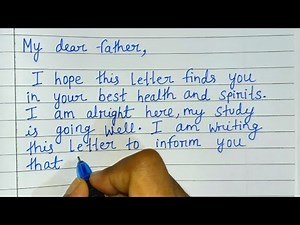 My dear father,
I hope this letter finds you
in your best health and spirits.
I am alright here, my study
is going well. I am writing
this letter to inform you
that